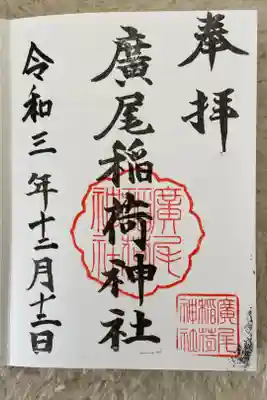 奉拝
廣尾稲荷神社
令和三年十二月十二日
廣尾
稲荷
神社
廣尾
稲荷
神社